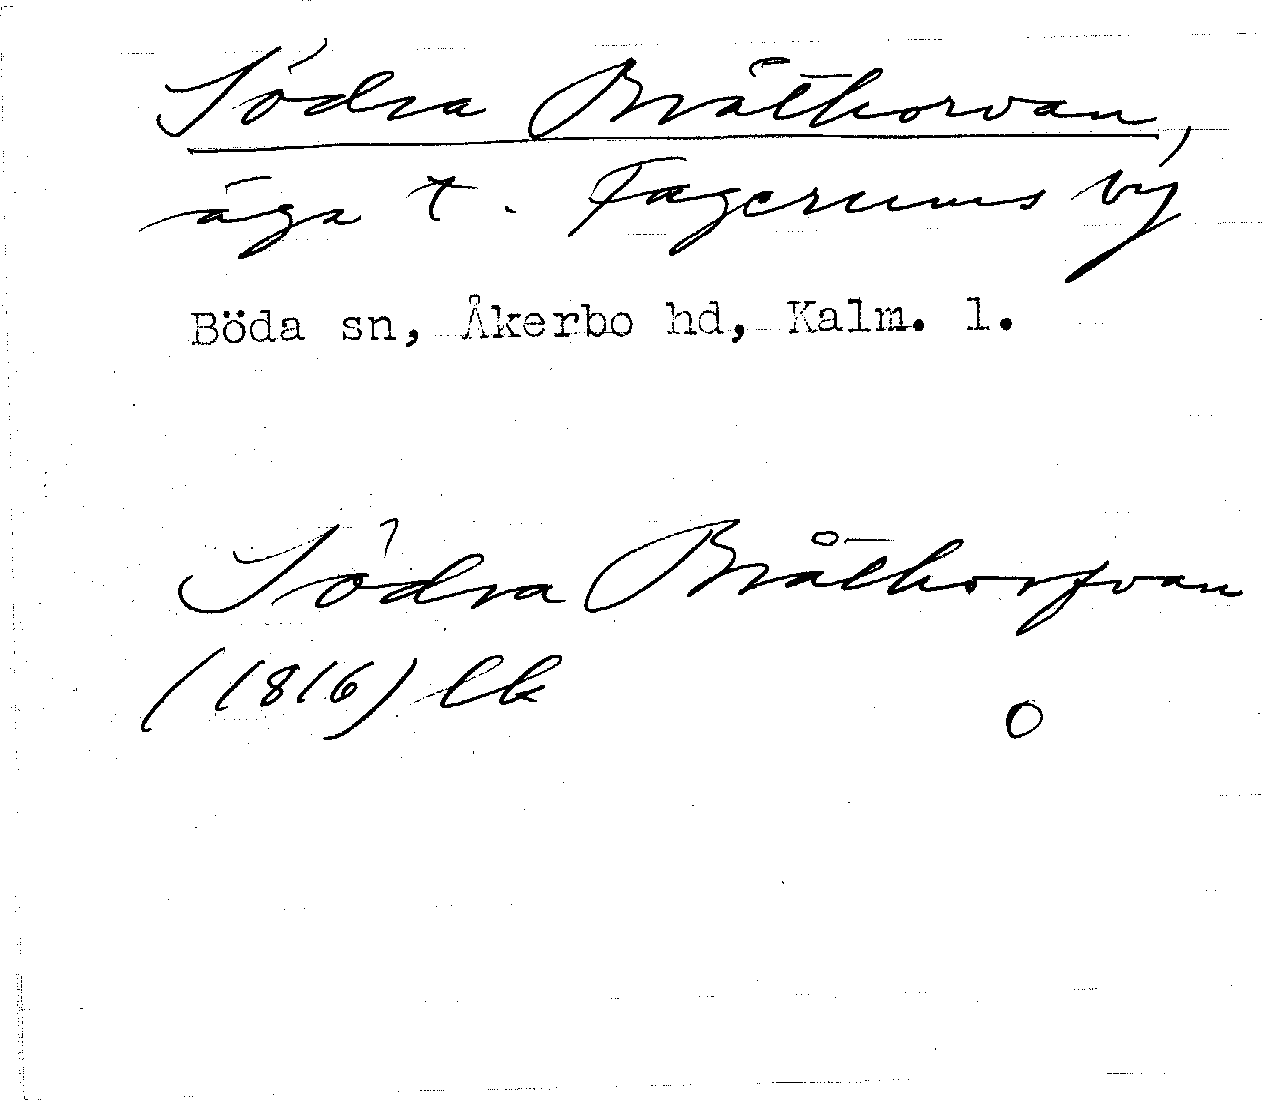 Södra Bråthorvan,
äga t. Fagerums by
Böda sn, Åkerbo hd, Kalm. l.
Södra Bråthorfvan
(1816) lk
O